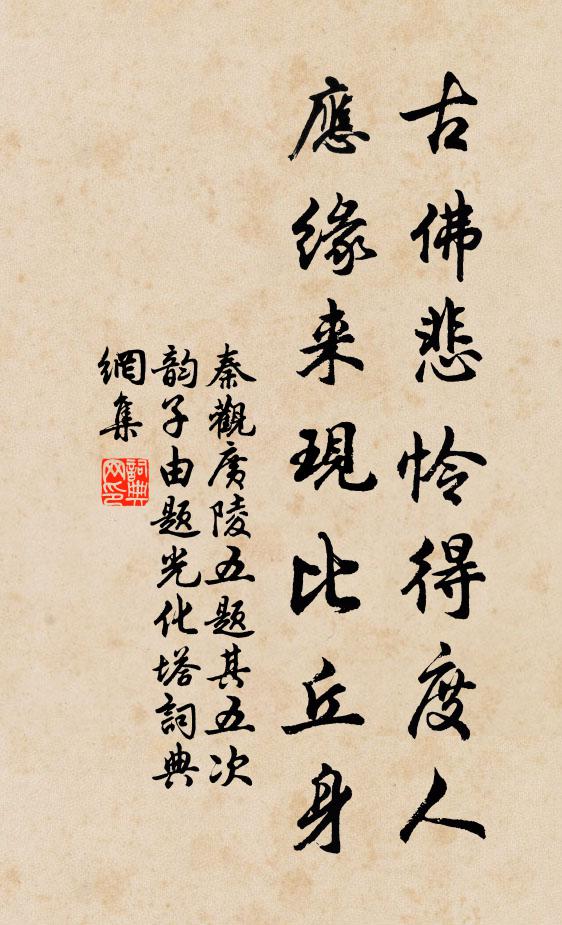 古佛悲怜得度人
應緣来現比丘身
秦觀廣陵五題其五次
韵子由題光化塔詞典
網集
詞典
网印